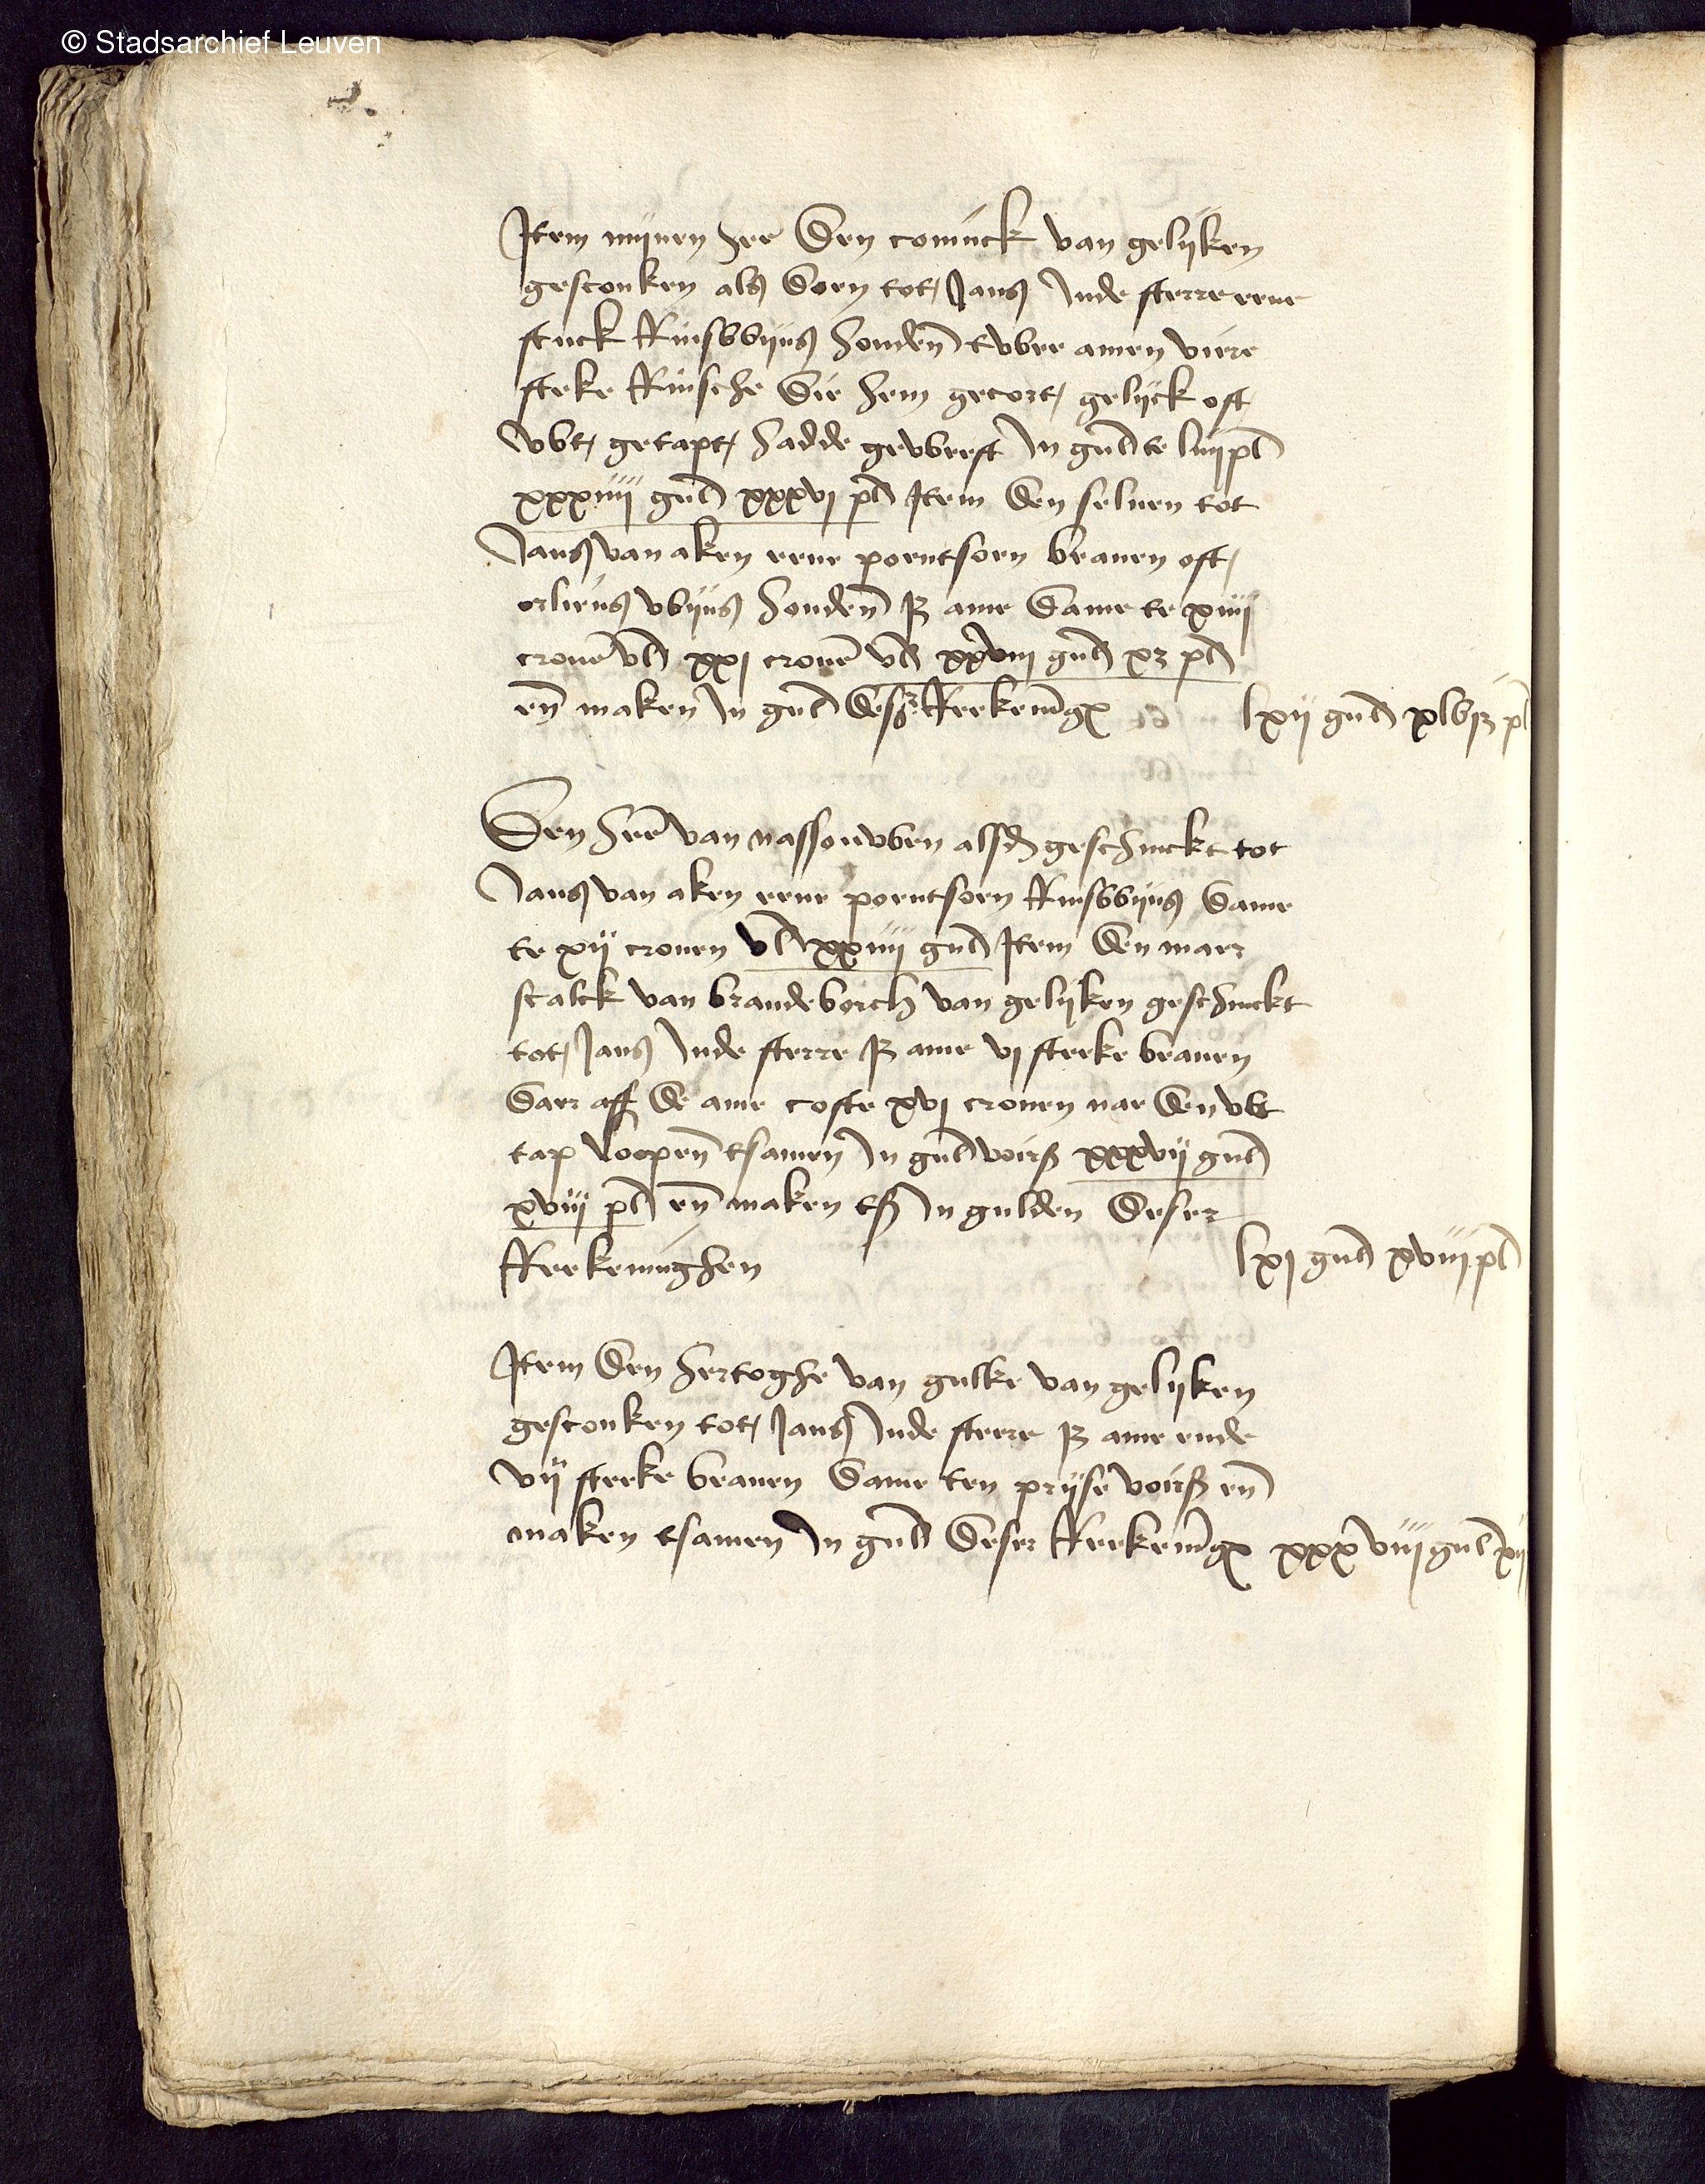 © Stadsarchief Leuven
Item mijnen hee den coninck van gelijken
gesconken als doen tot Jans Inde sterre eene
stuck Rinswijns houden twee amen viere
steke Rinsche die hem gecort gelijck oft
wt getapt hadde geweest In guld te liiij pl
xxxiiii guld xxxvj pl Item den seluen tot
Jans van aken eene poentsoen beanen oft
orliens wijns houden jß ame dame te xiiij
cronē vl xxj cronē vl xxviii guld xz pl
en maken In guld des Rekeningx lxij guld xlvjß pl
Den hee van nassouwen alsd geschinckt tot
Jans van aken eene poentsoen Rinswijns dame
te xij cronen vl xxiiij guld Item den maer
scalck van brandeborch van gelijken geschinckt
tot Jans Inde sterre jß ame vj steke beanen
daer aff de ame coste xvj cronen nae den wt
tap loopen tsamen In guld voirs xxxvij guld
xviij pl en maken ts In gulden deser
Rekeninghen lxj guld xviij pl
Item den hertoghe van gulke van gelijken
gesconken tot Jans Inde sterre jß ame ende
vij steke beanen dame ten prijse voirs en
maken tsamen In guld deser Rekeningx xxxviij guld xij